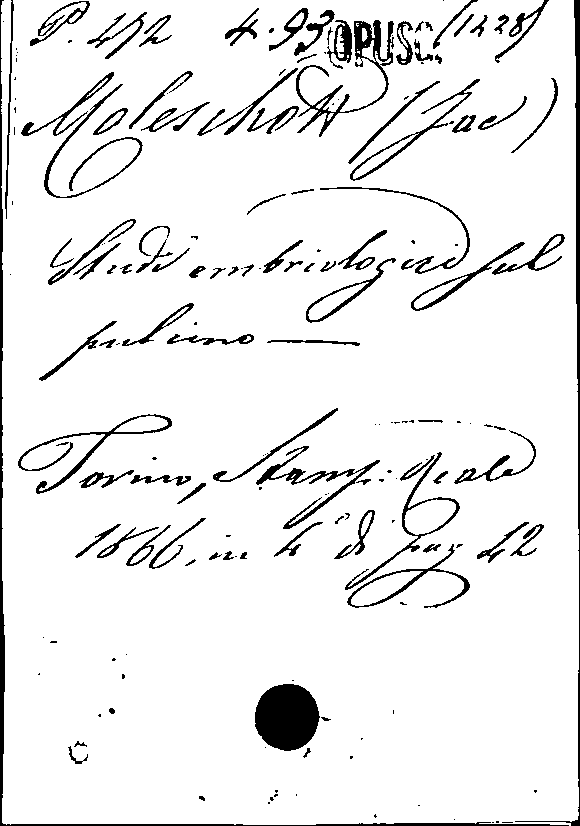 P. 472 4.93 OPUSC. (1428)
Moleschott (Jac)
Studi embriologici sul
pulcino —
Torino, Stamp: Reale
1866, in 4° di pag 42